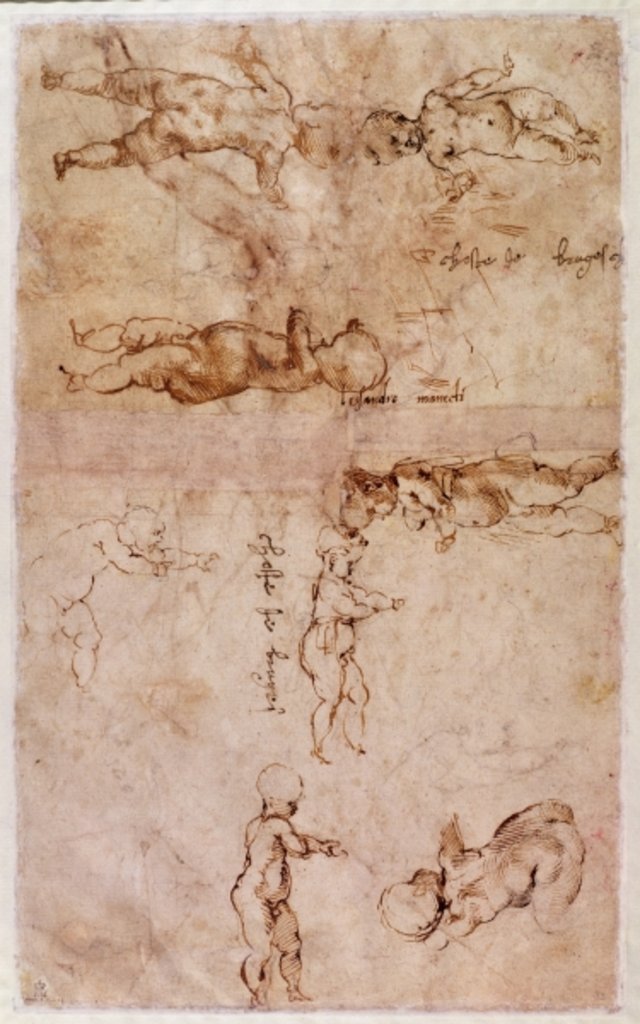 chose de bruges
lesandro manecti
chose de bruges